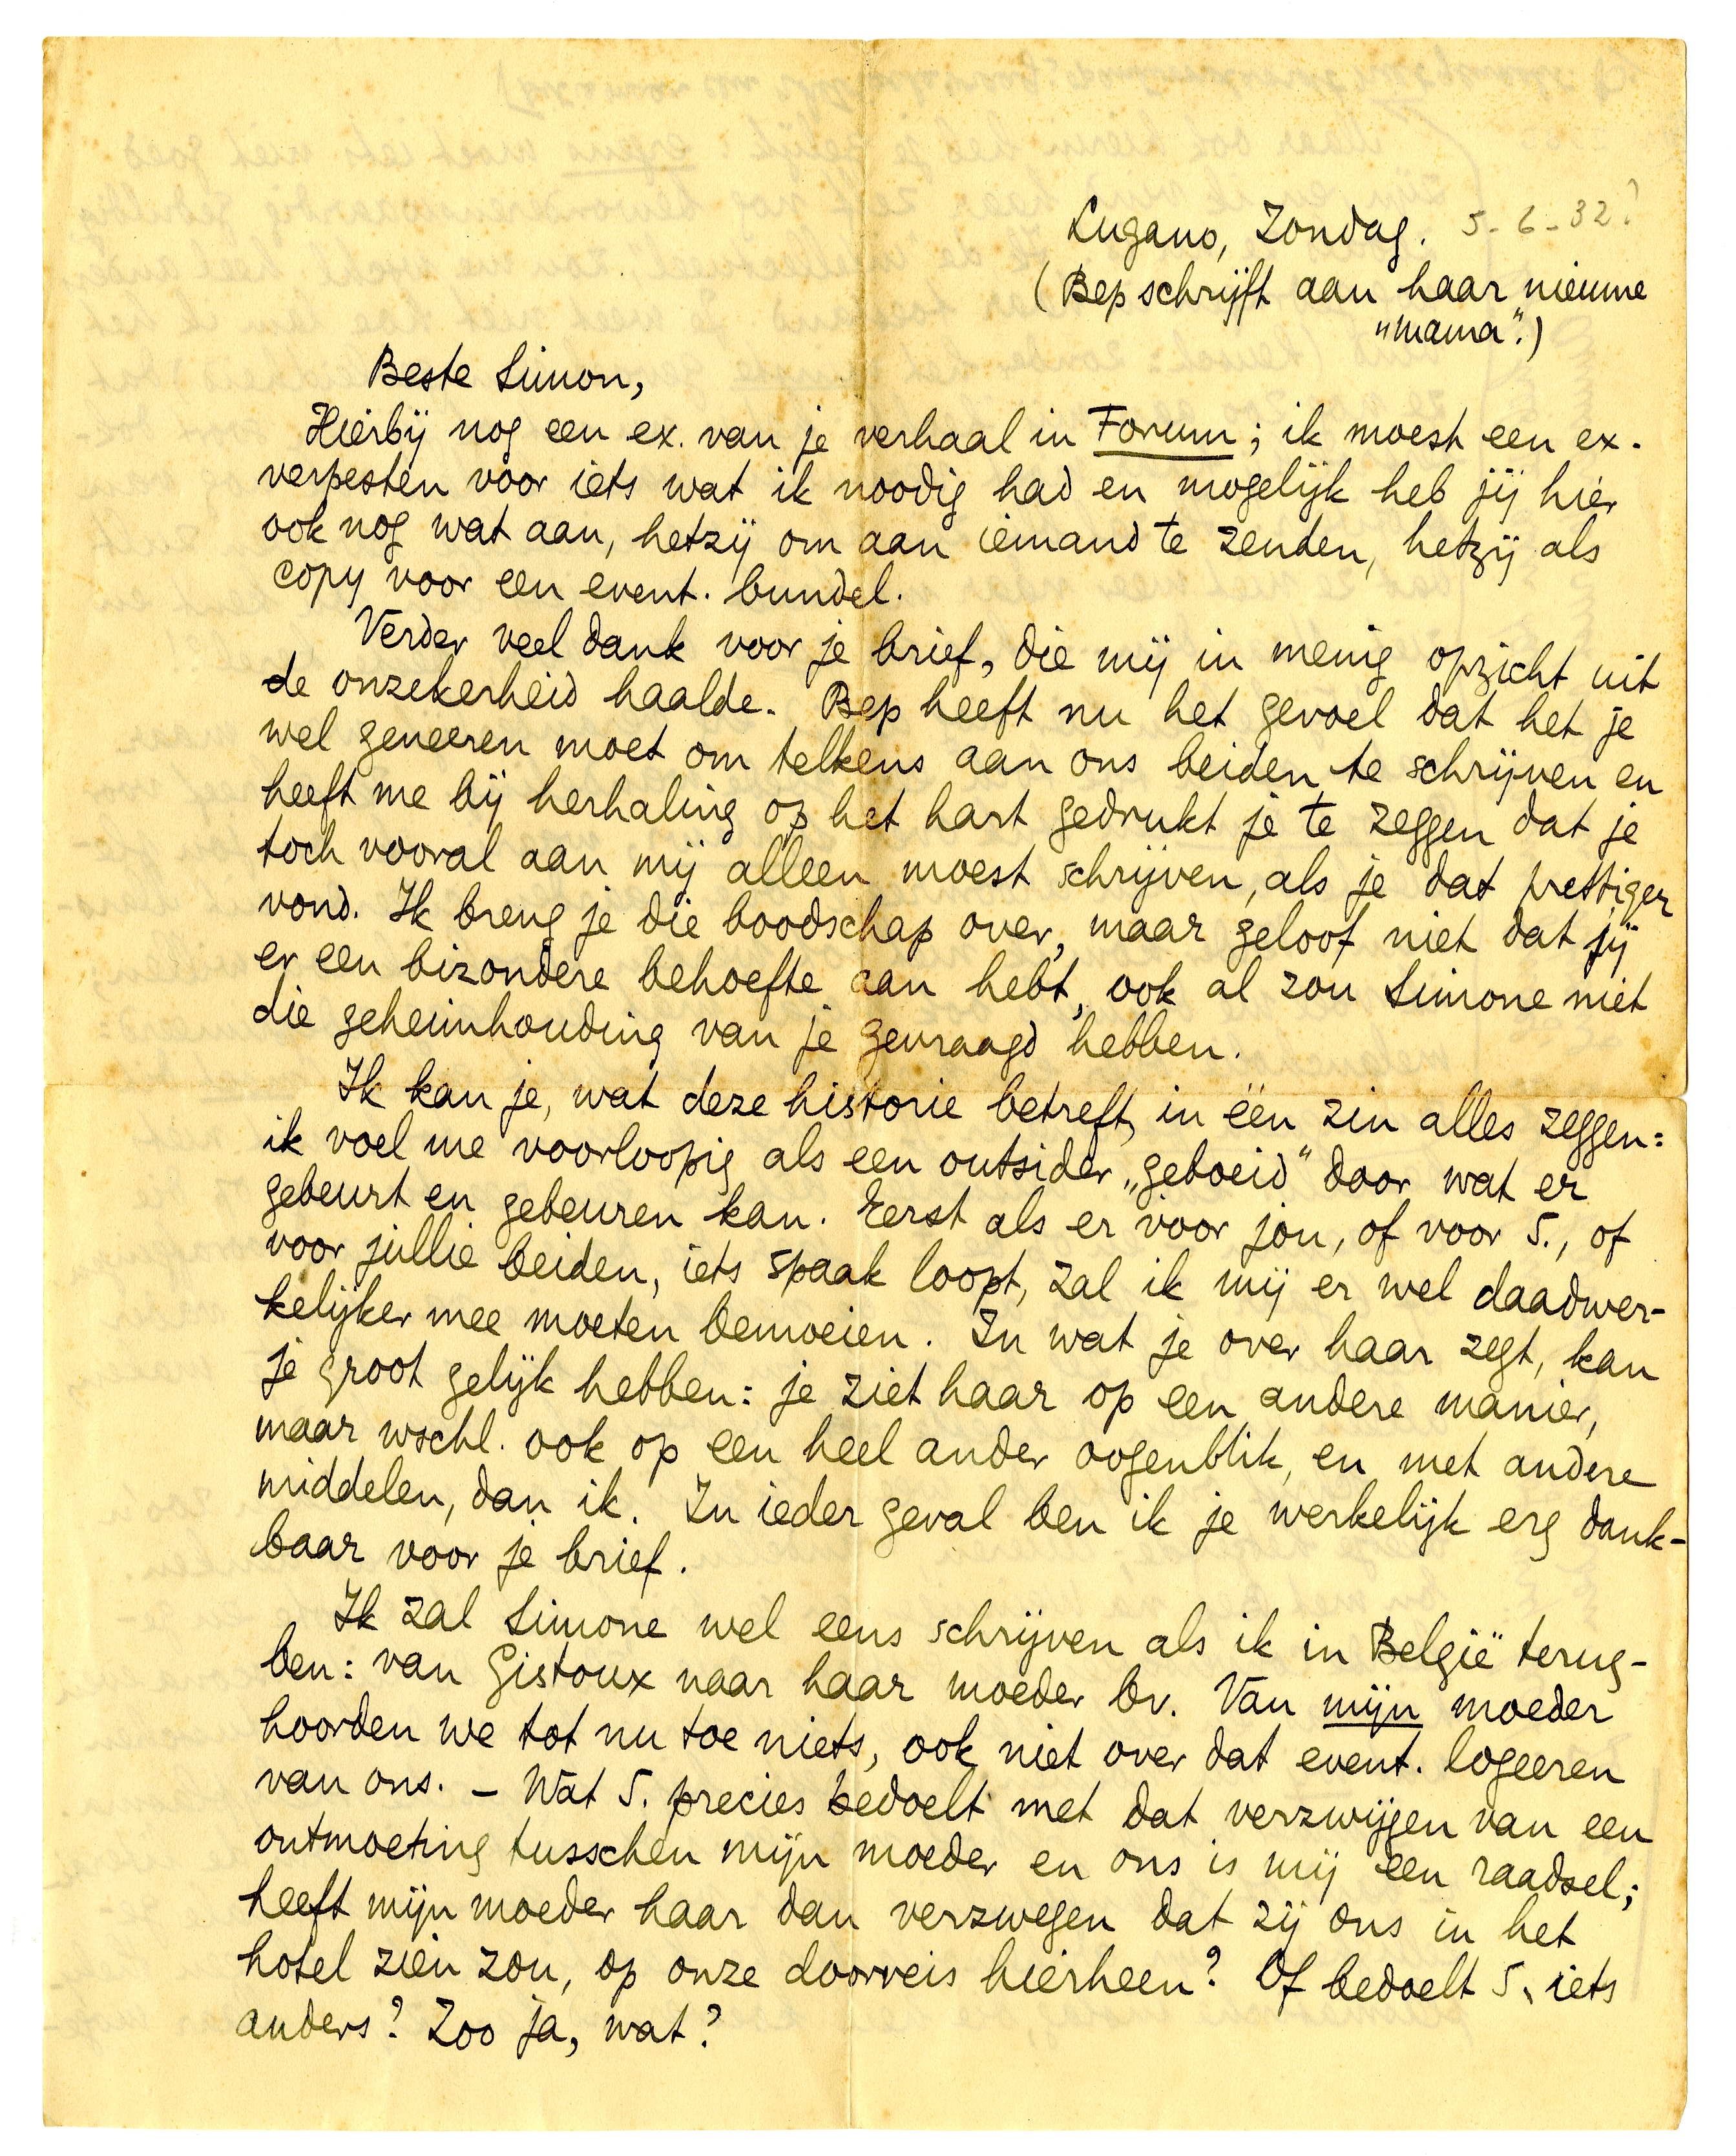 Lugano, Zondag. 5-6-32?
(Bep schrijft aan haar nieuwe
„mama".)
Beste Simon,
Hierbij nog een ex. van je verhaal in Forum; ik moest een ex.
verpesten voor iets wat ik noodig had en mogelijk heb jij hier
ook nog wat aan, hetzij om aan iemand te zenden, hetzij als
copy voor een event. bundel.
Verder veel dank voor je brief, die mij in menig opzicht uit
de onzekerheid haalde. Bep heeft nu het gevoel dat het je
wel geneeren moet om telkens aan ons beiden te schrijven en
heeft me bij herhaling op het hart gedrukt je te zeggen dat je
toch vooral aan mij alleen moest schrijven, als je dat prettiger
vond. Ik breng je die boodschap over, maar geloof niet dat jij
er een bizondere behoefte aan hebt, ook al zou Simone niet
die geheimhouding van je gevraagd hebben.
Ik kan je, wat deze historie betreft, in één zin alles zeggen:
ik voel me voorloopig als een outsider „geboeid" door wat er
gebeurt en gebeuren kan. Eerst als er voor jou, of voor S., of
voor jullie beiden, iets spaak loopt, zal ik mij er wel daadwer-
kelijker mee moeten bemoeien. In wat je over haar zegt, kan
je groot gelijk hebben: je ziet haar op een andere manier,
maar wschl. ook op een heel ander oogenblik, en met andere
middelen, dan ik. In ieder geval ben ik je werkelijk erg dank-
baar voor je brief.
Ik zal Simone wel eens schrijven als ik in België terug-
ben: van Gistoux naar haar moeder bv. Van mijn moeder
hoorden we tot nu toe niets, ook niet over dat event. logeeren
van ons. – Wat S. precies bedoelt met dat verzwijgen van een
ontmoeting tusschen mijn moeder en ons is mij een raadsel;
heeft mijn moeder haar dan verzwegen dat zij ons in het
hotel zien zou, op onze doorreis hierheen? Of bedoelt S. iets
anders? Zoo ja, wat?